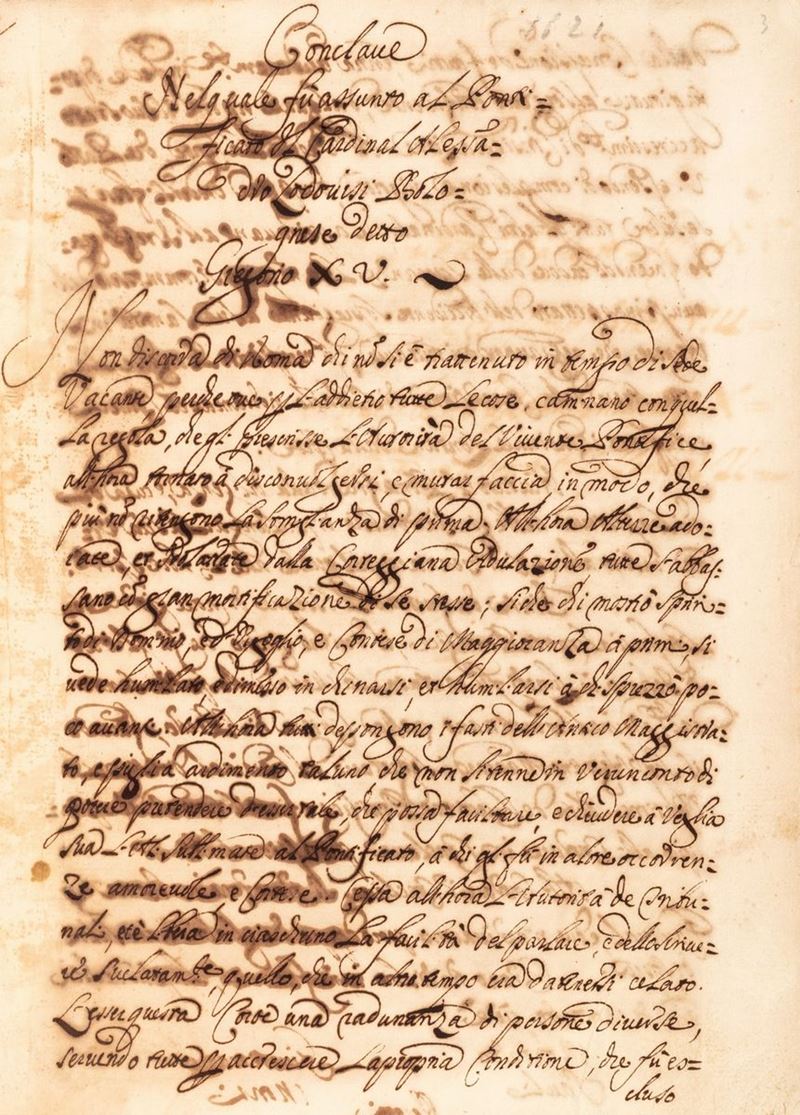 3
Conclave
Nel quale fù assunto al Ponti=
ficato il Cardinal Alessã=
dro Lodovisi Bolo=
gnese detto
Gregorio XV.
Non discorda di Roma chi nõ si è trattenuto in tempo di Sede
Vacante, perche ove l'addietro tutte le cose caminano con quel=
la regola, che gl. prescrisse l'Autorità del Vivente Pontefice
all'hora tornato à disconvolgersi, e mutar faccia in modo, che
più nõ ritengono la somglianza di prima. All'hora Alture ado=
rate, et dalla Correggiana Adulazione, tutte s'abbas=
sano cõ gran mortificazione di se stesse; si che chi mostrò spiri=
to di Dominio, ed Orgoglio, e Contese di Maggioranza à primi, si
vede humiliato, e dimesso in chinarsi, et humiliarsi à chi spezzò po=
co avanti. All'hora tutti depongono i fasti dell' Maggistra=
to, e piglia ardimento taluno che non si tenne in verun conto di
poter pretendere d'esser tale, che possa facilitare, e chiudere à Voglia
sua l'Alt. Sullimare al Pontificato, à chi gl. fù in altre occorren=
ze amorevole e Cortese. Cessa all'hora l'Autorità de Tribu=
nal, et è libera in ciascheduno la facilità del parlare, e dello scrive=
re Svelatamte, quello, che in altro tempo era da tenersi celato.
L'esser questa Corte una radunanza di persone diverse,
servendo tutte accrescere la propria Conditione, che fù es=
cluso